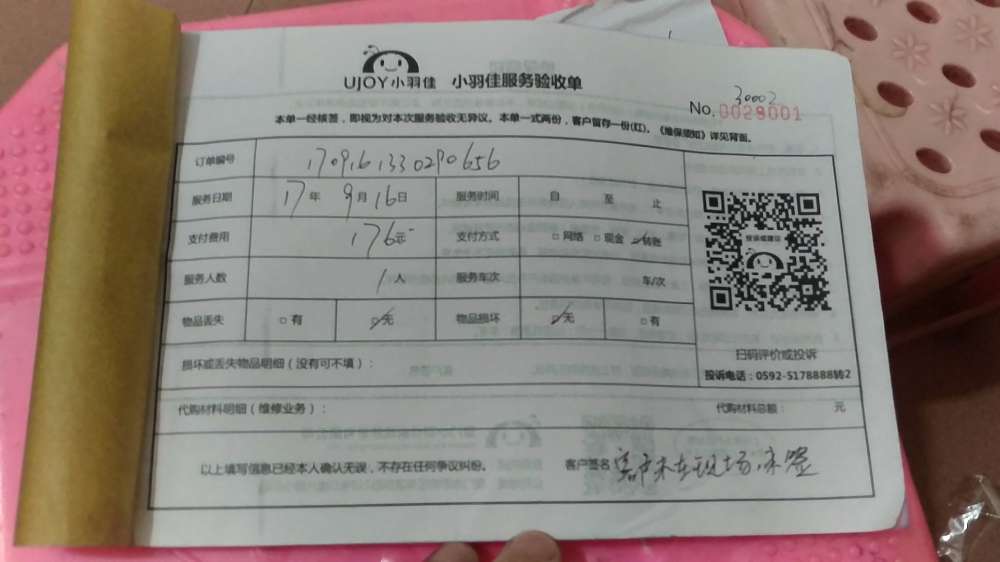 UJOY小羽佳 小羽佳服务验收单
30002
No.0029001
本单一经核签，即视为对本次服务验收无异议。本单一式两份，客户留存一份(红)。《维保须知》详见背面。
订单编号 1709161330290656
服务日期 17年 9月16日 服务时间 自 至 止
支付费用 176元 支付方式 □网络 □现金 ☑转账
服务人数 1人 服务车次 车/次
物品丢失 □有 ☑无 物品损坏 ☑无 □有
投诉或建议
扫码评价或投诉
投诉电话：0592-5178888转2
损坏或丢失物品明细（没有可不填）：
代购材料明细（维修业务）： 代购材料总额： 元
以上填写信息已经本人确认无误，不存在任何争议纠纷。 客户签名 客户未在现场，未签